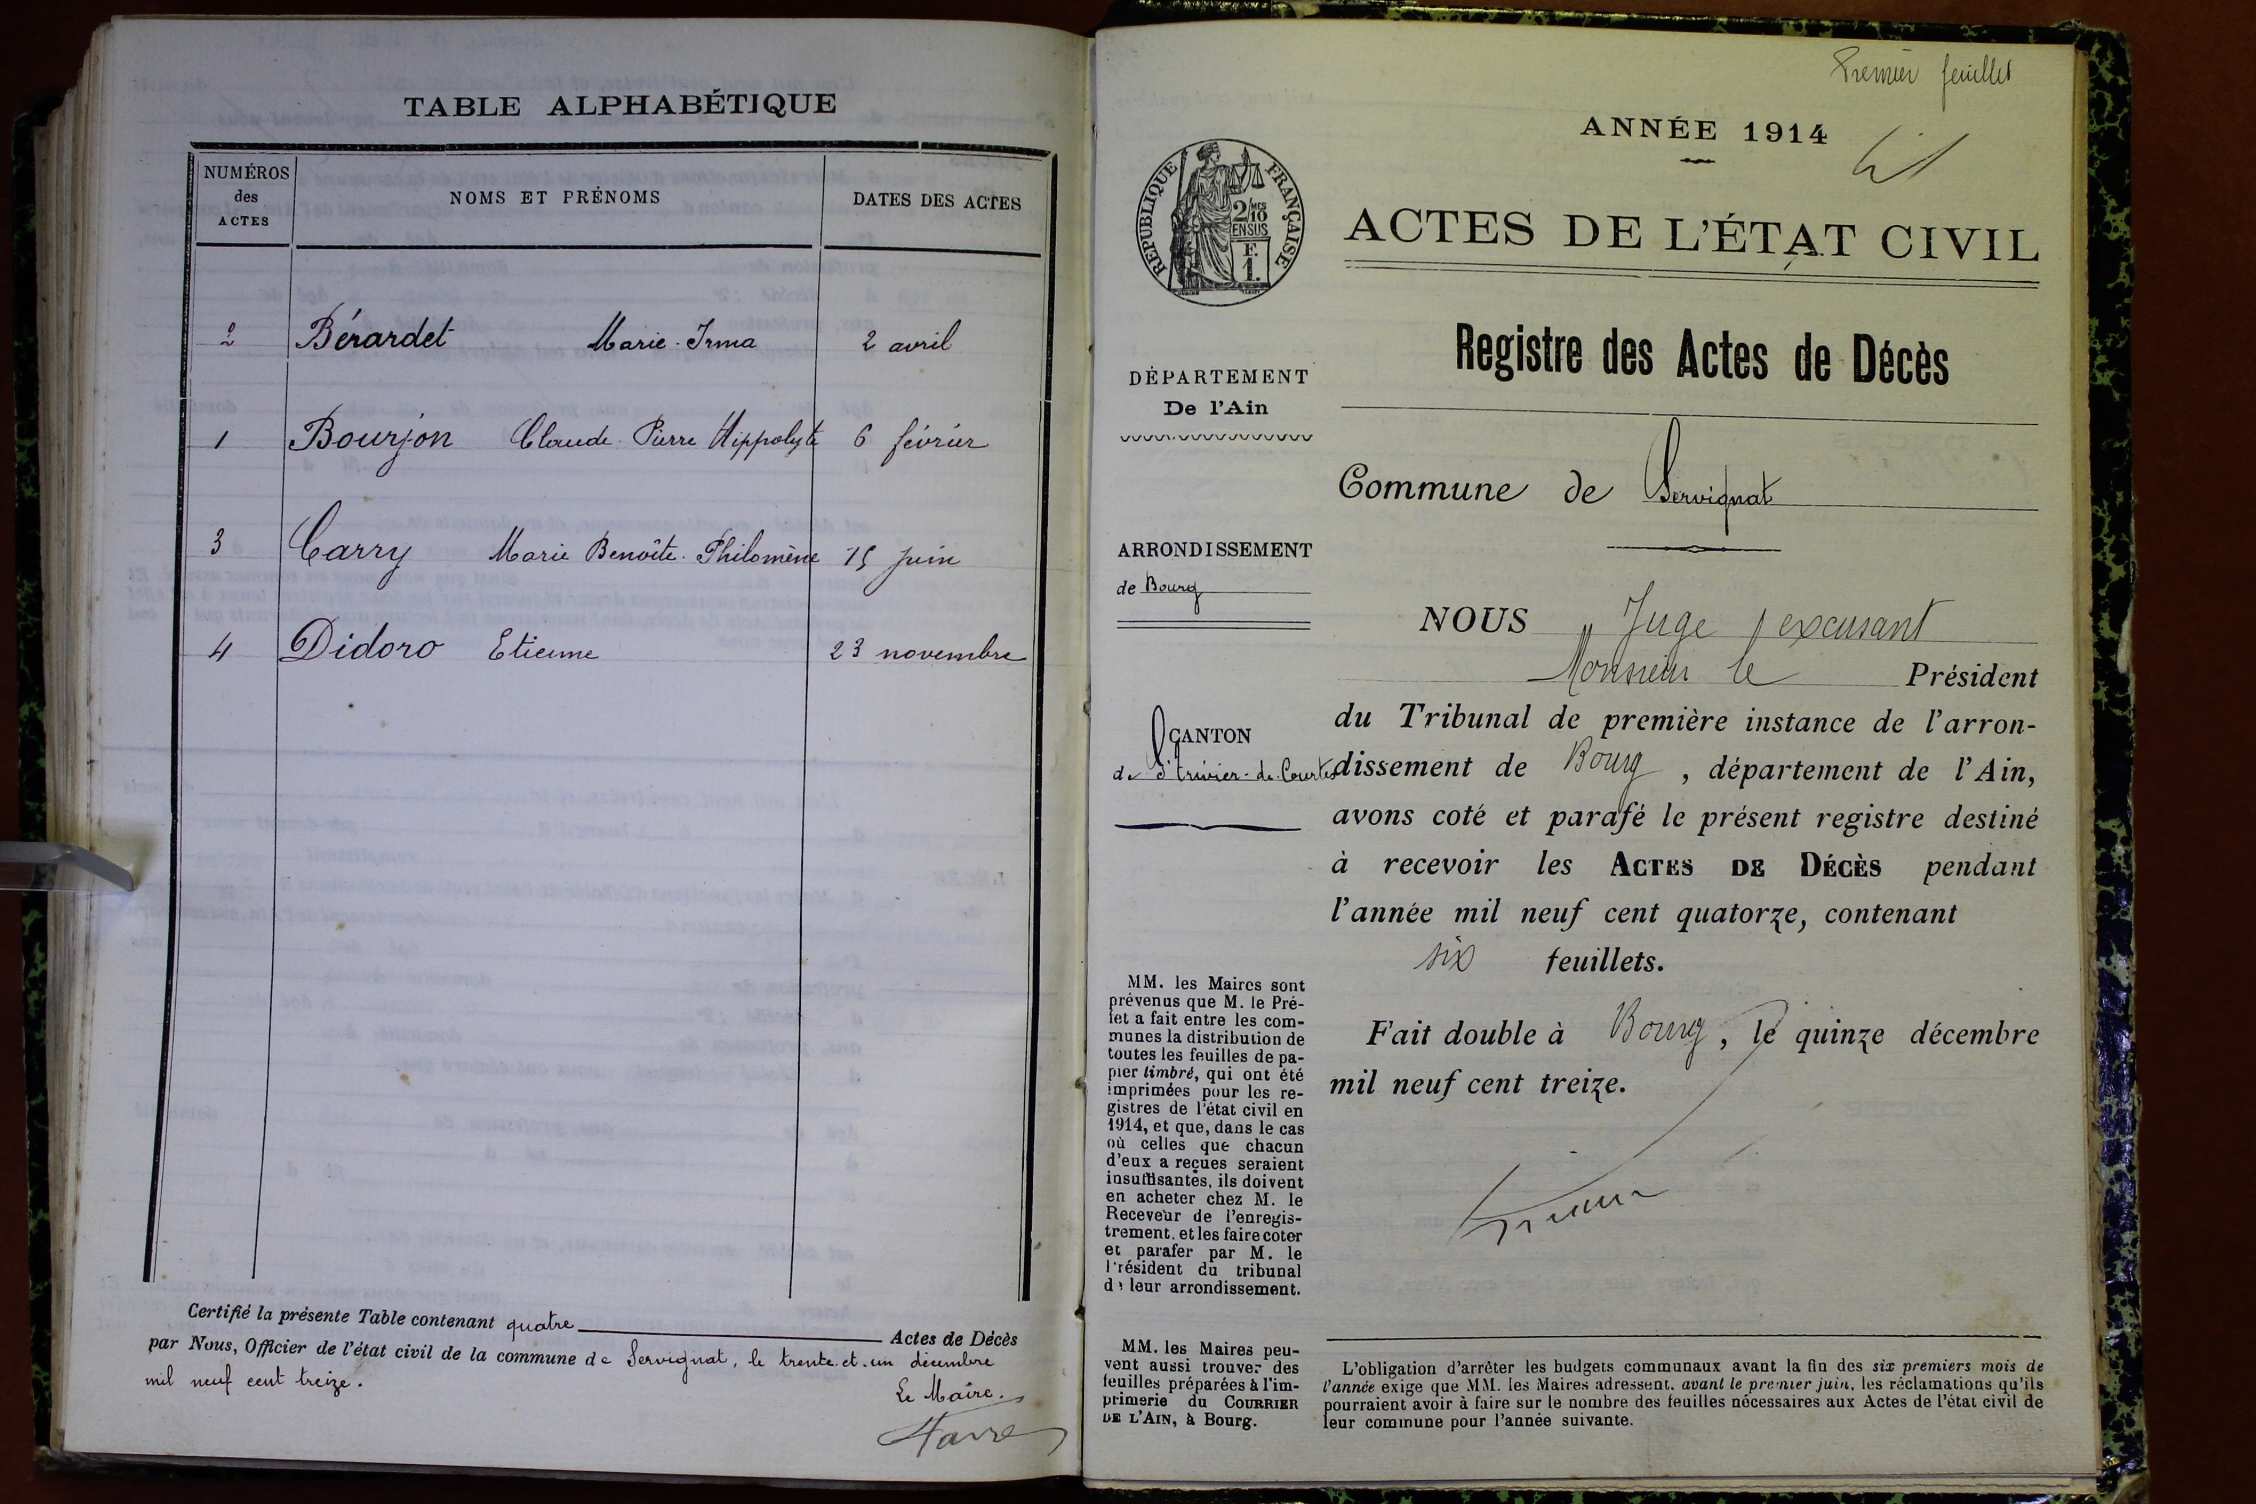 TABLE ALPHABÉTIQUE
NUMÉROS
des
ACTES
NOMS ET PRÉNOMS
DATES DES ACTES
2 Bérardet Marie-Irma 2 avril
1 Bourjon Claude Pierre Hippolyte 6 février
3 Carry Marie Benoîte Philomène 15 juin
4 Didoro Etienne 23 novembre
Certifié la présente Table contenant quatre Actes de Décès
par Nous, Officier de l'état civil de la commune de Servignat, le trente-et-un décembre
mil neuf cent treize.
Le Maire.
Premier feuillet
ANNÉE 1914
RÉPUBLIQUE FRANÇAISE
2/10
MES
EN SUS
F.
1.
ACTES DE L'ÉTAT CIVIL
Registre des Actes de Décès
DÉPARTEMENT
De l'Ain
Commune de Servignat
ARRONDISSEMENT
de Bourg
CANTON
de St Trivier-de-Courtes
NOUS Juge excusant
Monsieur le Président
du Tribunal de première instance de l'arron-
dissement de Bourg, département de l'Ain,
avons coté et parafé le présent registre destiné
à recevoir les ACTES DE DÉCÈS pendant
l'année mil neuf cent quatorze, contenant
six feuillets.
Fait double à Bourg, le quinze décembre
mil neuf cent treize.
MM. les Maires sont
prévenus que M. le Pré-
fet a fait entre les com-
munes la distribution de
toutes les feuilles de pa-
pier timbré, qui ont été
imprimées pour les re-
gistres de l'état civil en
1914, et que, dans le cas
où celles que chacun
d'eux a reçues seraient
insuffisantes, ils doivent
en acheter chez M. le
Receveur de l'enregis-
trement, et les faire coter
et parafer par M. le
Président du tribunal
de leur arrondissement.
MM. les Maires peu-
vent aussi trouver des
feuilles préparées à l'im-
primerie du COURRIER
DE L'AIN, à Bourg.
L'obligation d'arrêter les budgets communaux avant la fin des six premiers mois de
l'année exige que MM. les Maires adressent, avant le premier juin, les réclamations qu'ils
pourraient avoir à faire sur le nombre des feuilles nécessaires aux Actes de l'état civil de
leur commune pour l'année suivante.